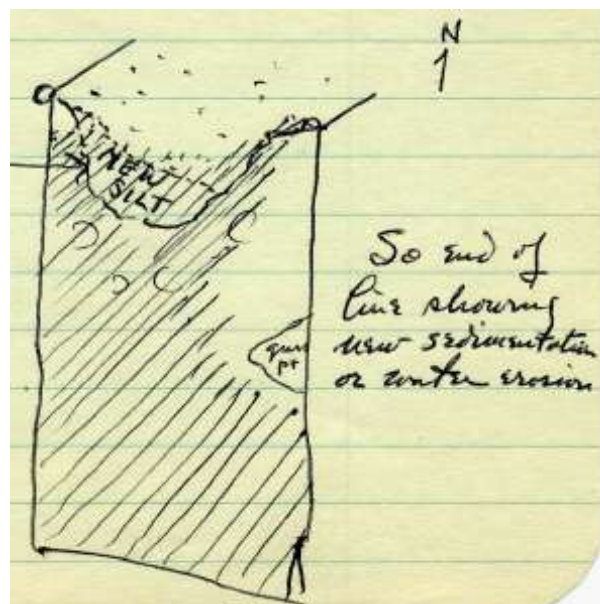 N
NEW
SILT
So end of
line showing
new sedimentation
or water erosion
pt